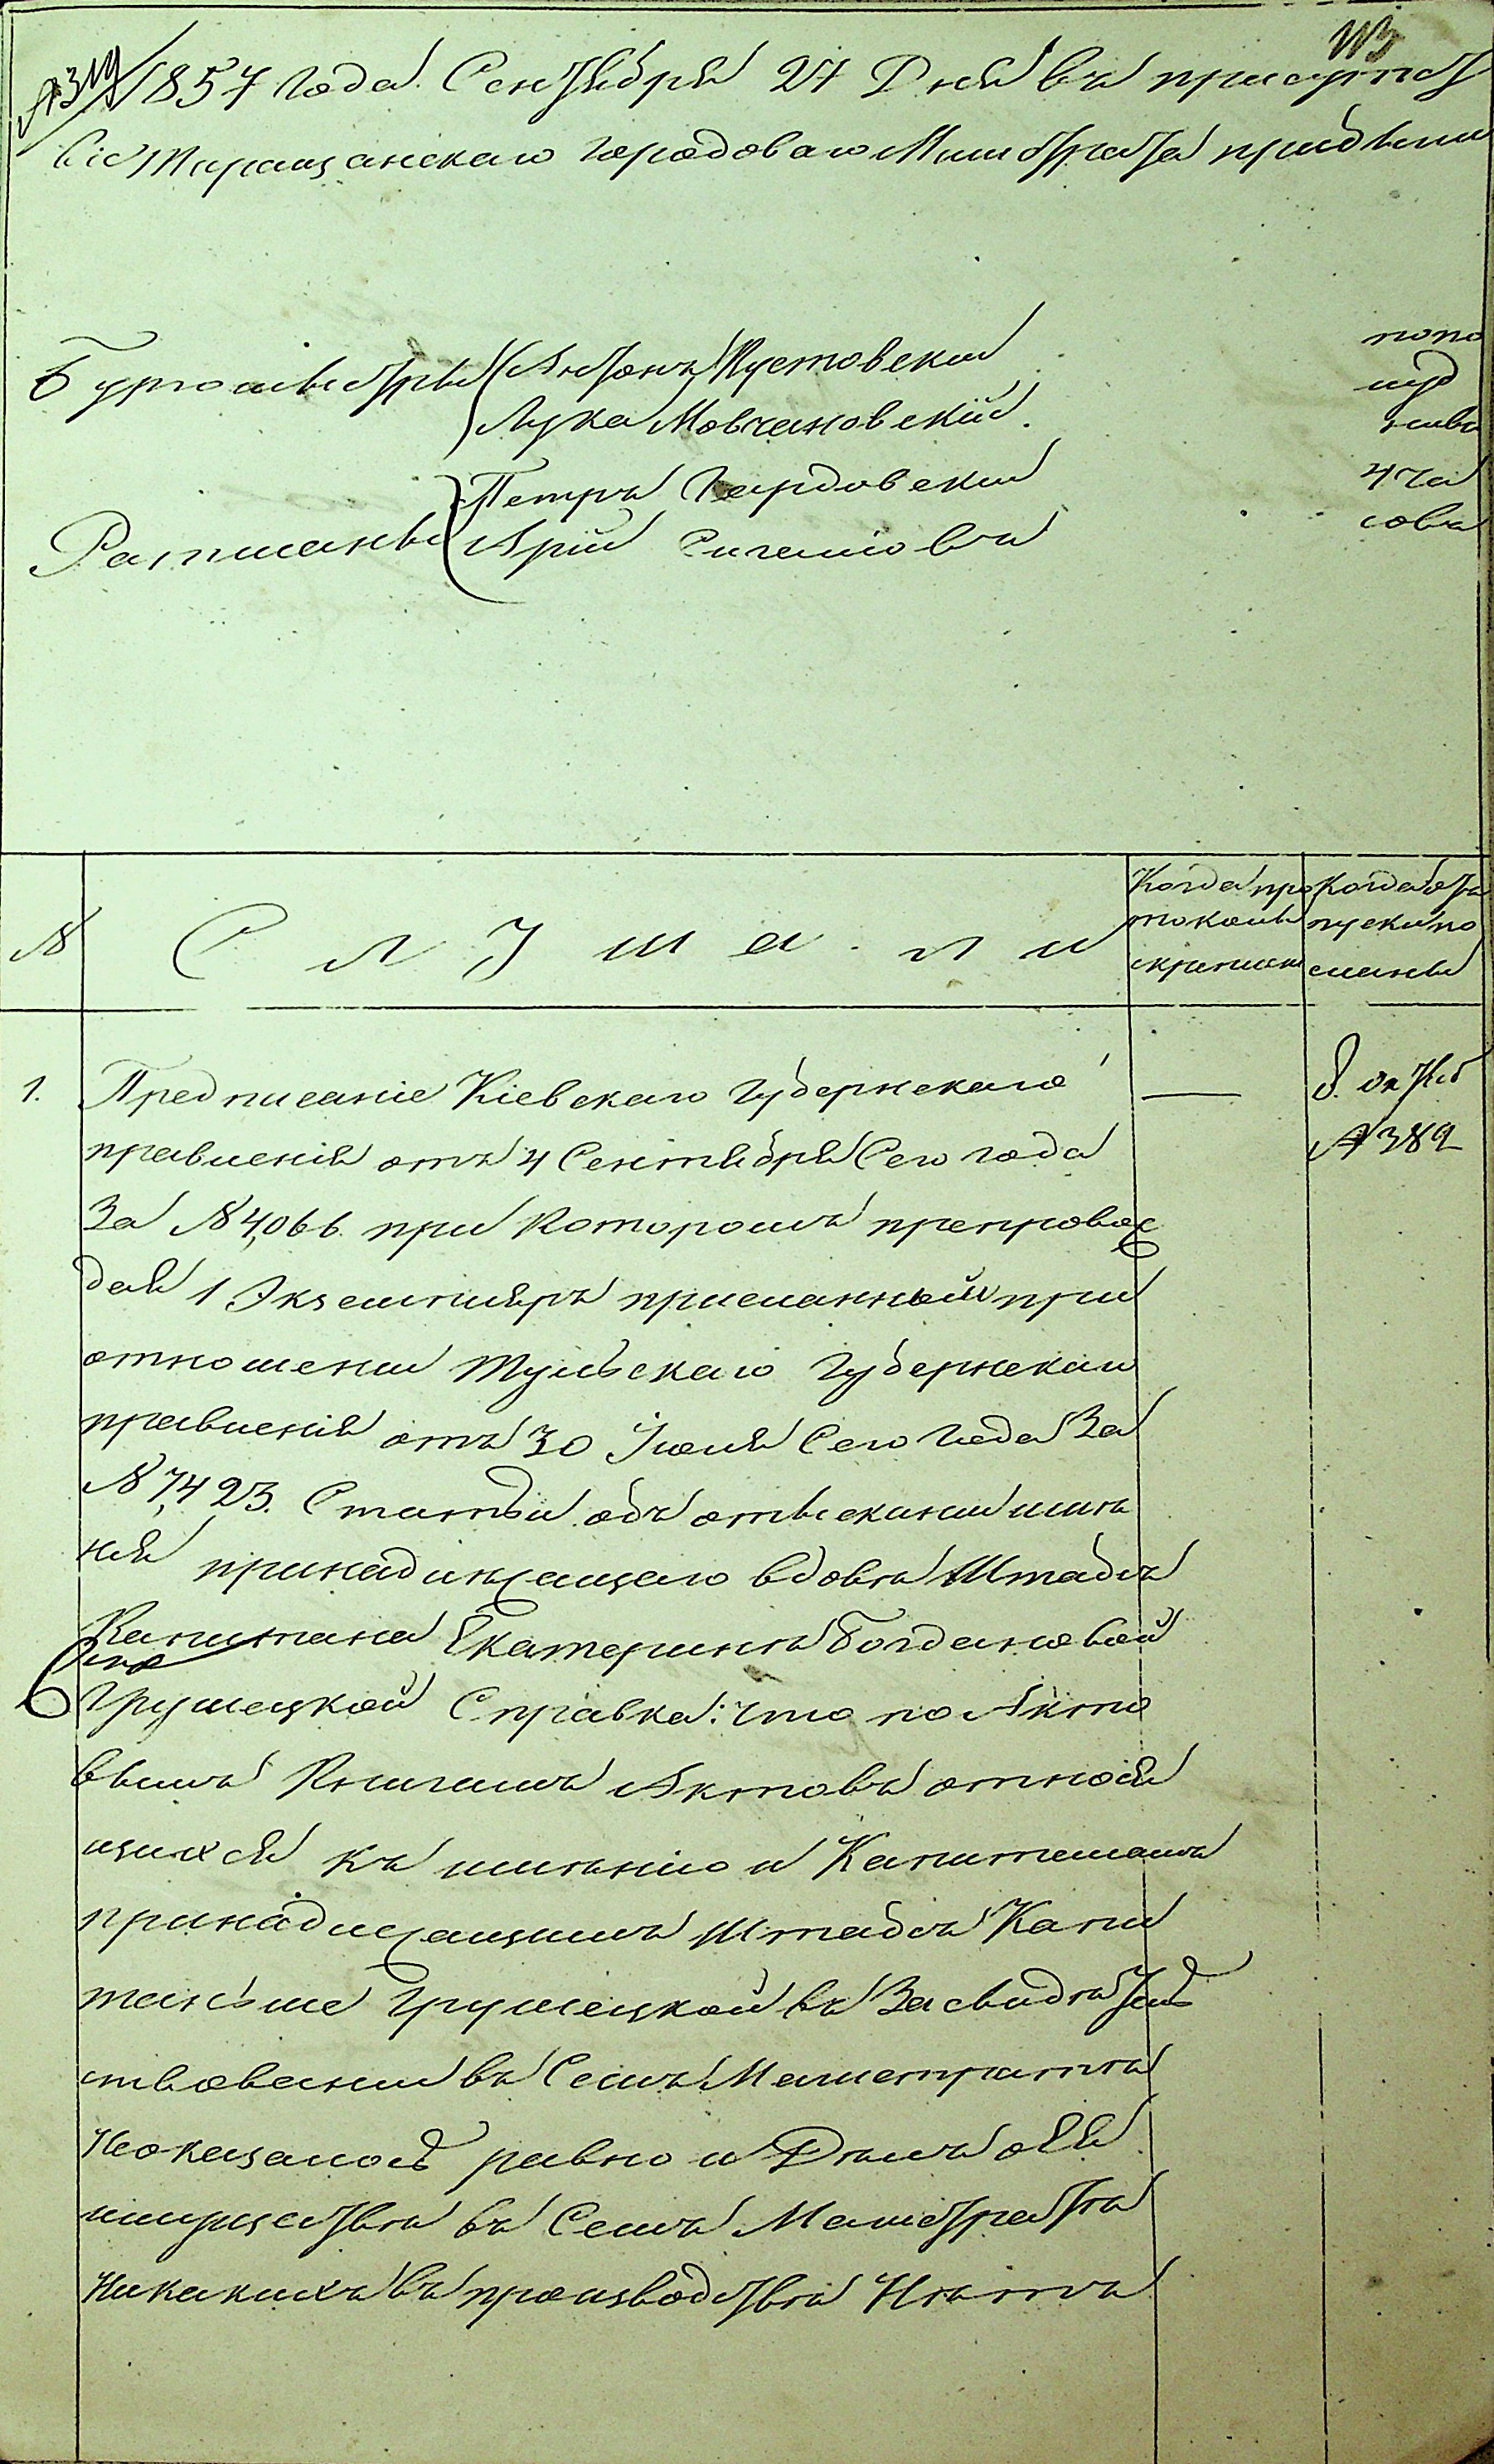 113
№ 319 1857 года Сентября 27 Дня въ присутст
віе Таращанскаго городоваго Магистрата прибыли
Бургомистры Антонъ Кустовскій
Лука Мовчановскій.
Ратманы Петръ Гардовскій
попо
луд
4 ча
совъ
№
Слушали
Когда про
токолъ
скрепленъ
Когда от
пуски по
сланы
1. Предписаніе Кіевскаго Губернскаго
правленія отъ 4 Сентября Сего года
За № 4,066. при которомъ препровож
дая 1 Экземпляръ присланный при
отношеніи Тульскаго Губернскаго
правленія отъ 30 Іюля Сего Года За
№ 7,423. Статьи объ отысканіи имѣ
нія принадлежащаго вдовѣ Штабсъ
Капитана Екатеринѣ Богдановой
Грушецкой Справка: что по Акто
вымъ Книгамъ Актовъ относя
щихся къ имѣнію и Капиталамъ
принадлежащимъ Штабсъ Капи
танъше Грушецкой въ Засвидѣтель
ствованіи въ Семъ Магистратѣ
Неоказалось равно и Дѣлъ о Ея
имуществѣ въ Семъ Магистратѣ
Никакихъ въ производствѣ Нѣтъ
8. Октяб
№ 389